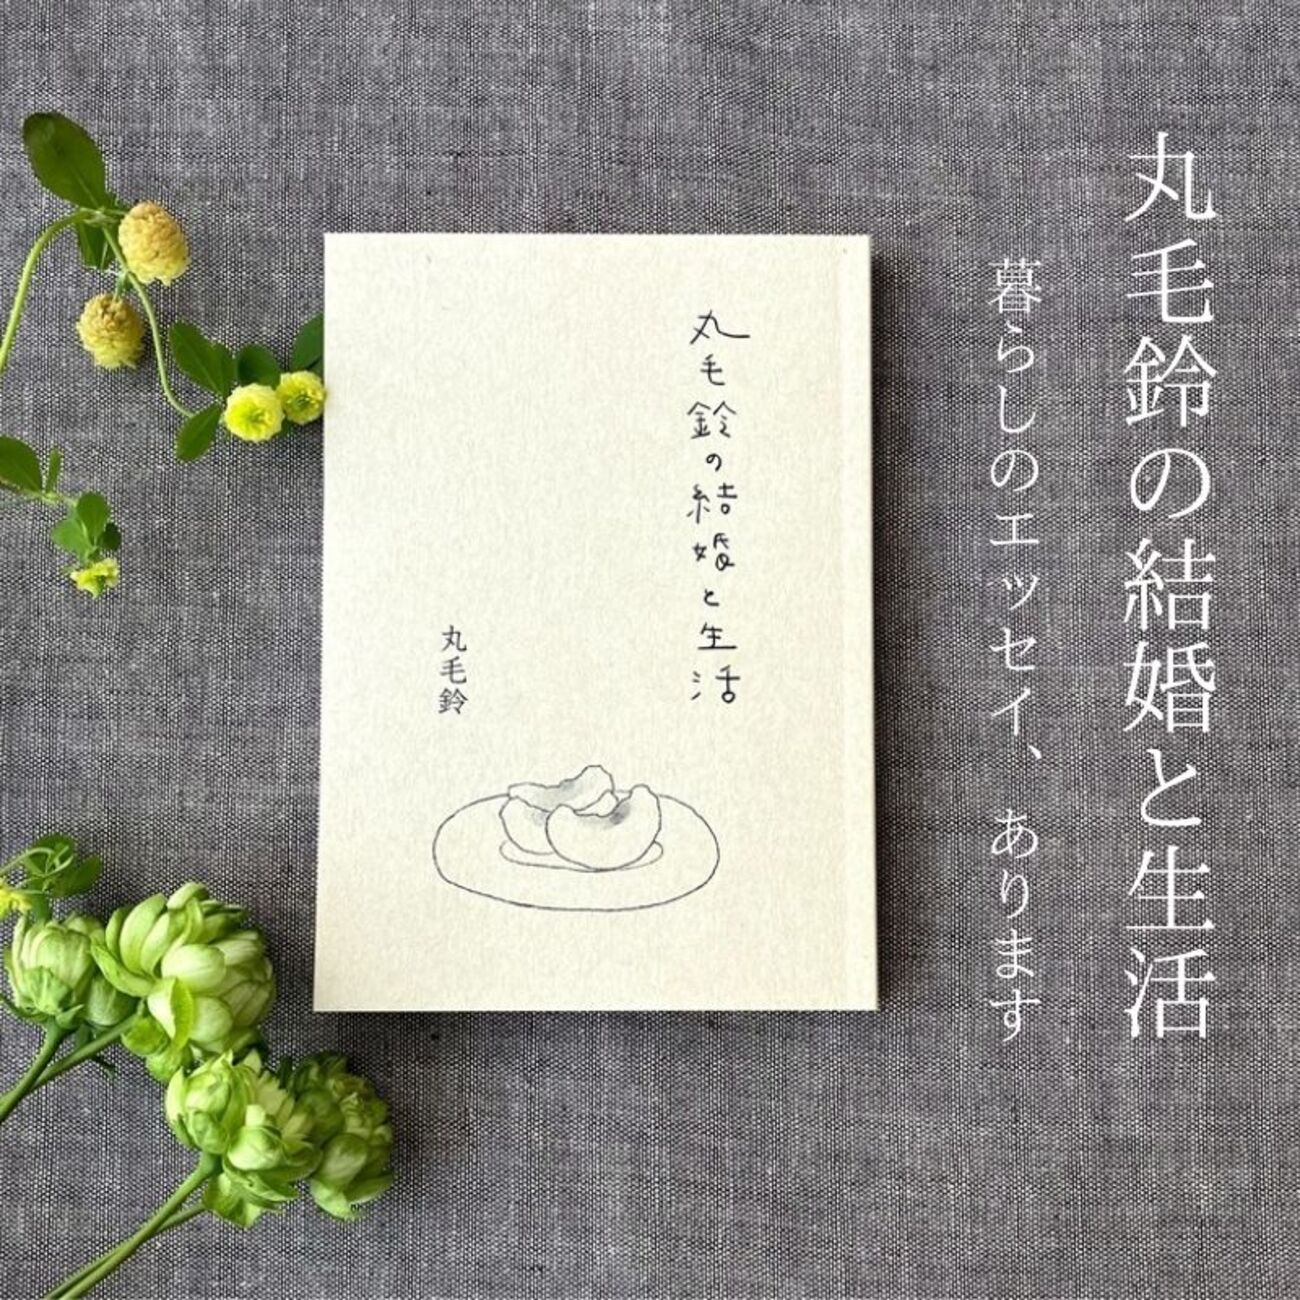 丸毛鈴の結婚と生活
暮らしのエッセイ、あります
丸毛鈴の結婚と生活
丸毛鈴